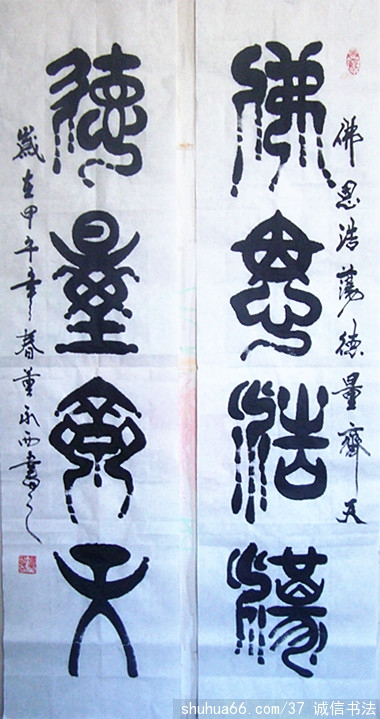 佛恩浩荡德量齐天
佛恩浩蕩
德量齊天
歲在甲午年春董永西書之
shuhua66.com/37 诚信书法